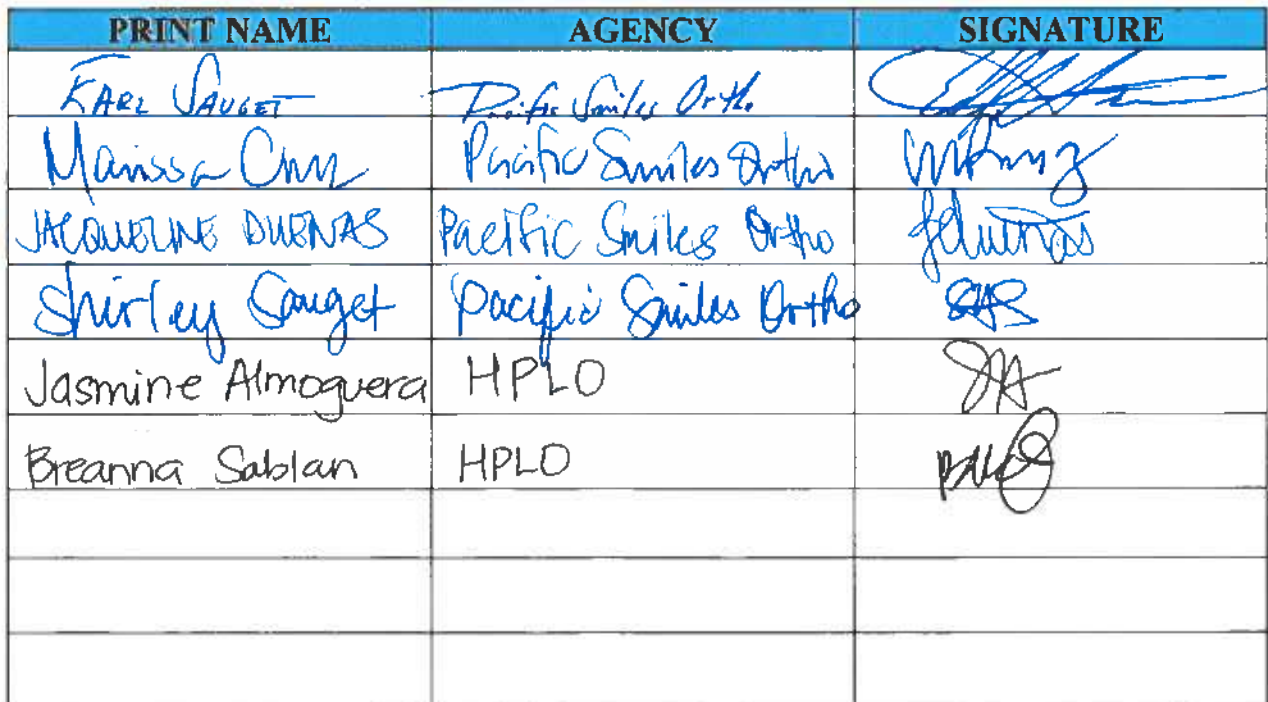 PRINT NAME AGENCY SIGNATURE
KARL SAUGET Pacific Smiles Ortho
Marissa Cruz Pacific Smiles Ortho
JACQUELINE DUENAS Pacific Smiles Ortho JDuenas
Shirley Sauget Pacific Smiles Ortho SAS
Jasmine Almoguera HPLO JA
Breanna Sablan HPLO